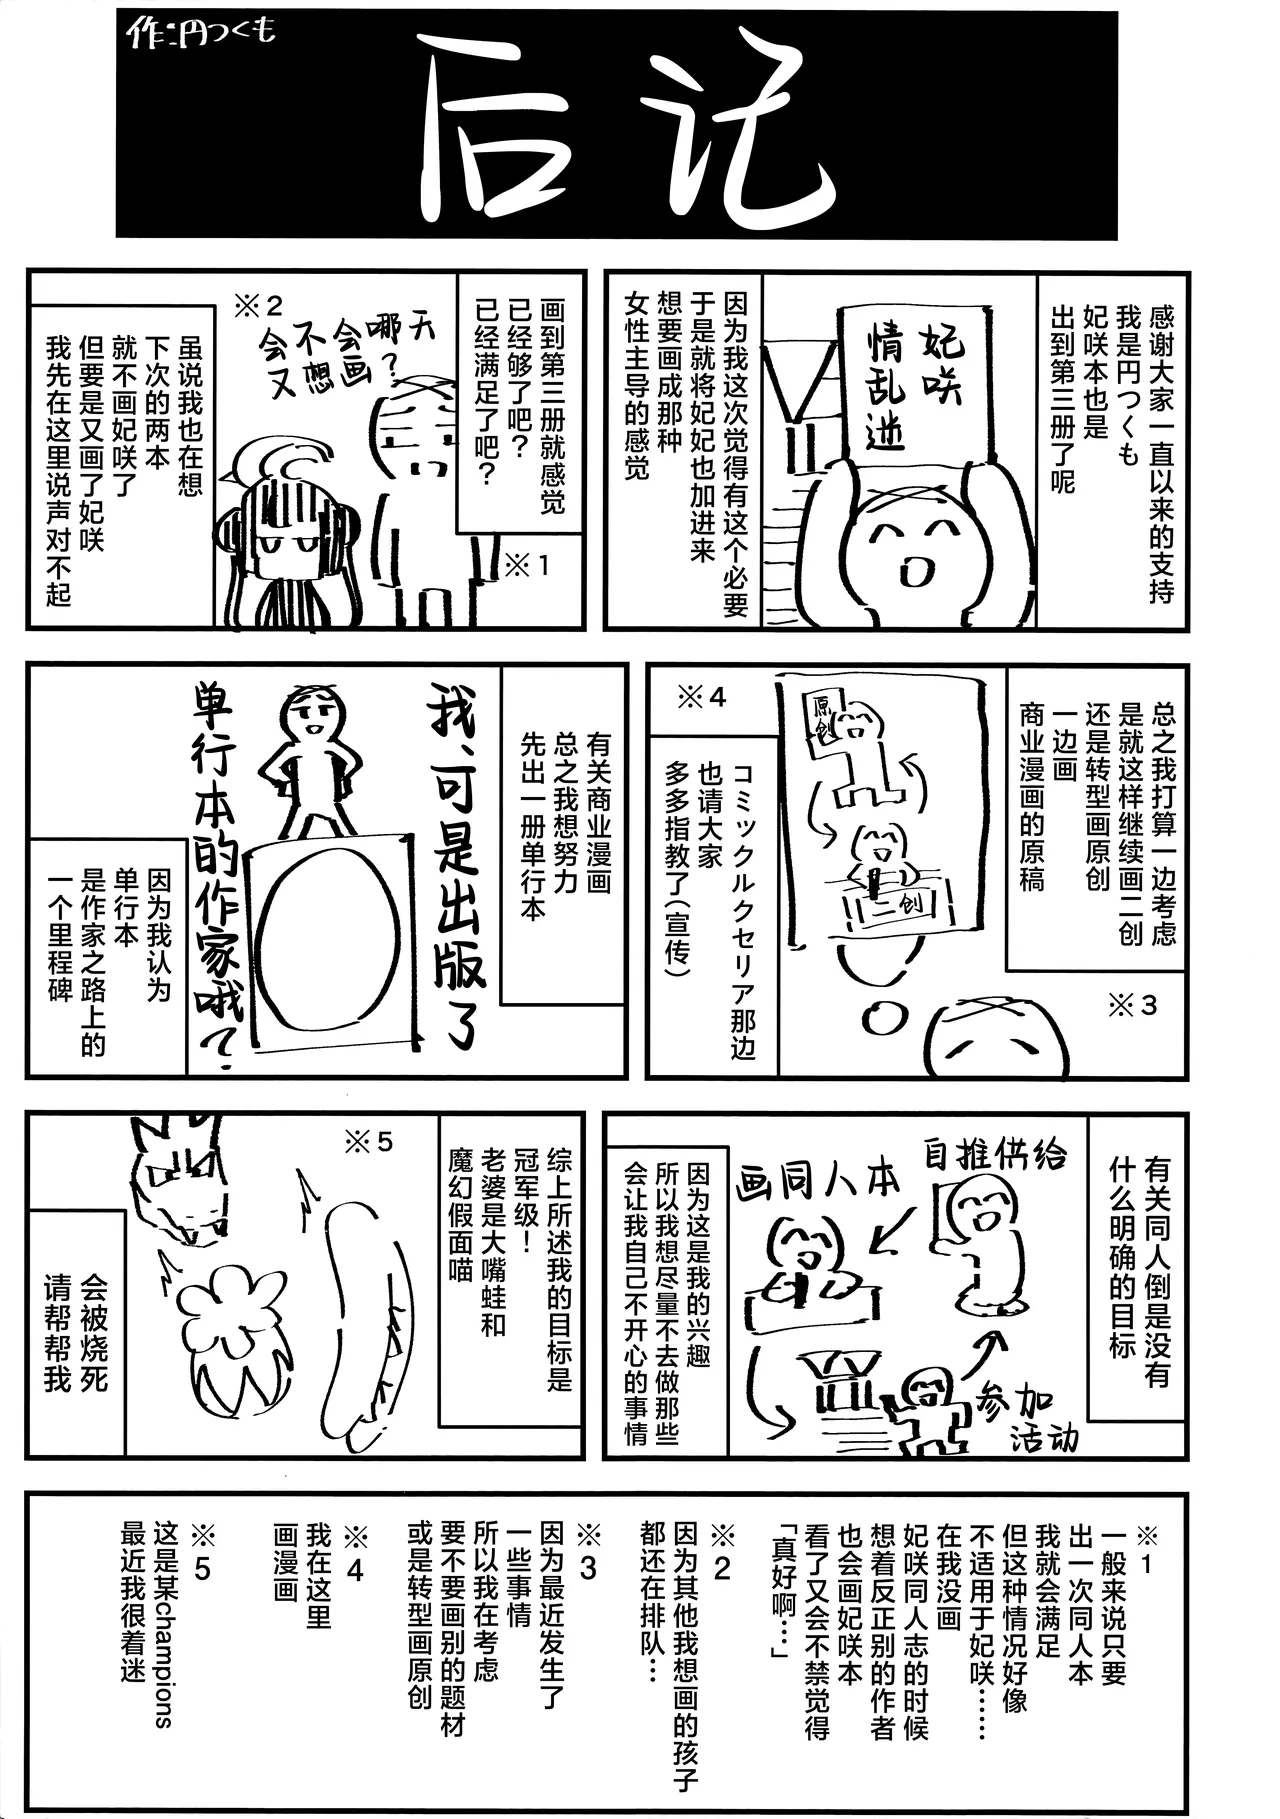 作:円つくも
后记
感谢大家一直以来的支持
我是円つくも
妃咲本也是
出到第三册了呢
妃咲
情乱迷
因为我这次觉得有这个必要
于是就将妃妃也加进来
想要画成那种
女性主导的感觉
画到第三册就感觉
已经够了吧?
已经满足了吧?
※1
会不会哪天
又想画?
※2
虽说我也在想
下次的两本
就不画妃咲了
但要是又画了妃咲
我先在这里说声对不起
总之我打算一边考虑
是就这样继续画二创
还是转型画原创
一边画
商业漫画的原稿
※3
原创
二创
※4
コミックルクセリア那边
也请大家
多多指教了(宣传)
有关商业漫画
总之我想努力
先出一册单行本
我、可是出版了
单行本的作家哦?
因为我认为
单行本
是作家之路上的
一个里程碑
有关同人倒是没有
什么明确的目标
自推供给
画同人本
参加
活动
因为这是我的兴趣
所以我想尽量不去做那些
会让我自己不开心的事情
综上所述我的目标是
冠军级!
老婆是大嘴蛙和
魔幻假面喵
※5
会被烧死
请帮帮我
※1
一般来说只要
出一次同人本
我就会满足
但这种情况好像
不适用于妃咲……
在我没画
妃咲同人志的时候
想着反正别的作者
也会画妃咲本
看了又会不禁觉得
「真好啊…」
※2
因为其他我想画的孩子
都还在排队…
※3
因为最近发生了
一些事情
所以我在考虑
要不要画别的题材
或是转型画原创
※4
我在这里
画漫画
※5
这是某champions
最近我很着迷